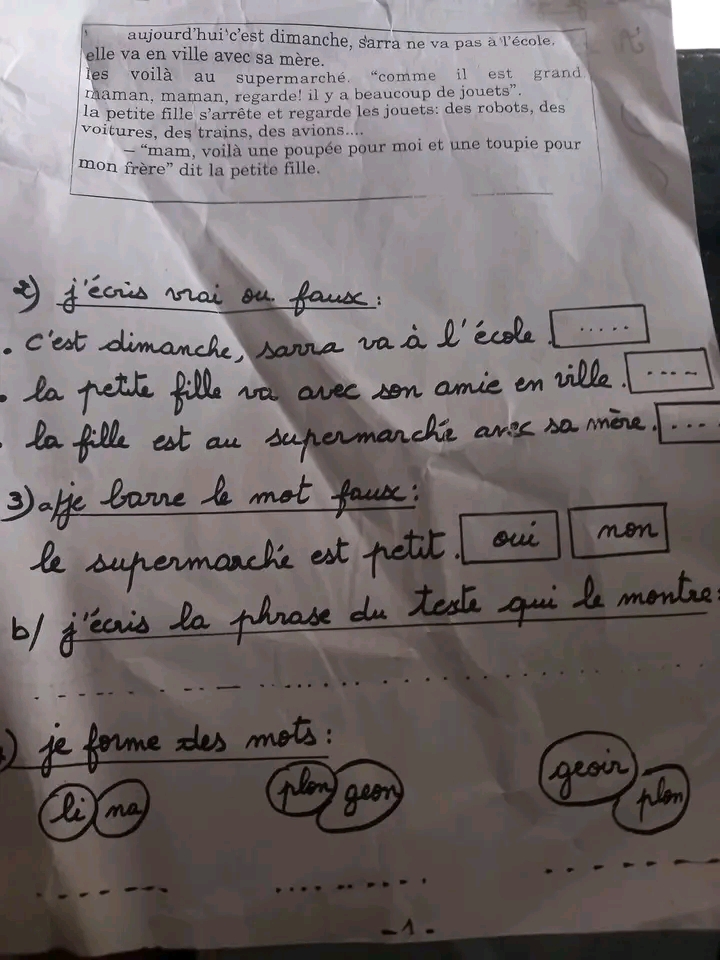 aujourd'hui c'est dimanche, sarra ne va pas à l'école.
elle va en ville avec sa mère.
les voilà au supermarché. "comme il est grand
maman, maman, regarde! il y a beaucoup de jouets".
la petite fille s'arrête et regarde les jouets: des robots, des
voitures, des trains, des avions....
– "mam, voilà une poupée pour moi et une toupie pour
mon frère" dit la petite fille.
2) j'écris vrai ou faux :
. c'est dimanche, sarra va à l'école . .....
. la petite fille va avec son amie en ville . ....
. la fille est au supermarché avec sa mère . ...
3) a/ je barre le mot faux :
le supermarché est petit . oui non
b/ j'écris la phrase du texte qui le montre :
) je forme des mots :
li na plon geon geoir plon
- 1 -